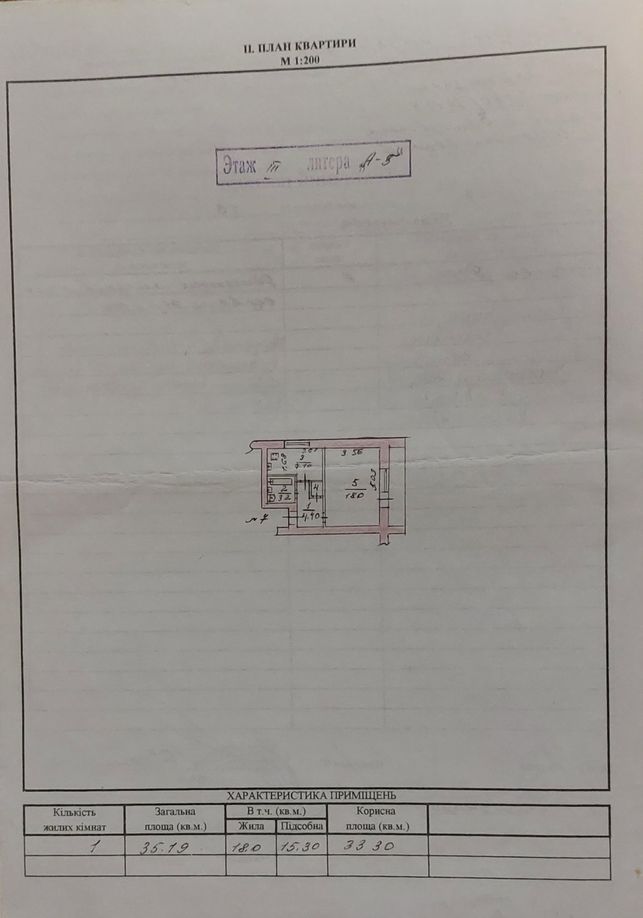 II. ПЛАН КВАРТИРИ
М 1:200
Этаж III литера „А-5"
3.56
3
2
3.2
4
5
18.0
5.05
1
4.90
№ 7
ХАРАКТЕРИСТИКА ПРИМІЩЕНЬ
Кількість жилих кімнат
Загальна площа (кв.м.)
В т.ч. (кв.м.)
Жила
Підсобна
Корисна площа (кв.м.)
1 35.19 18.0 15.30 33 30